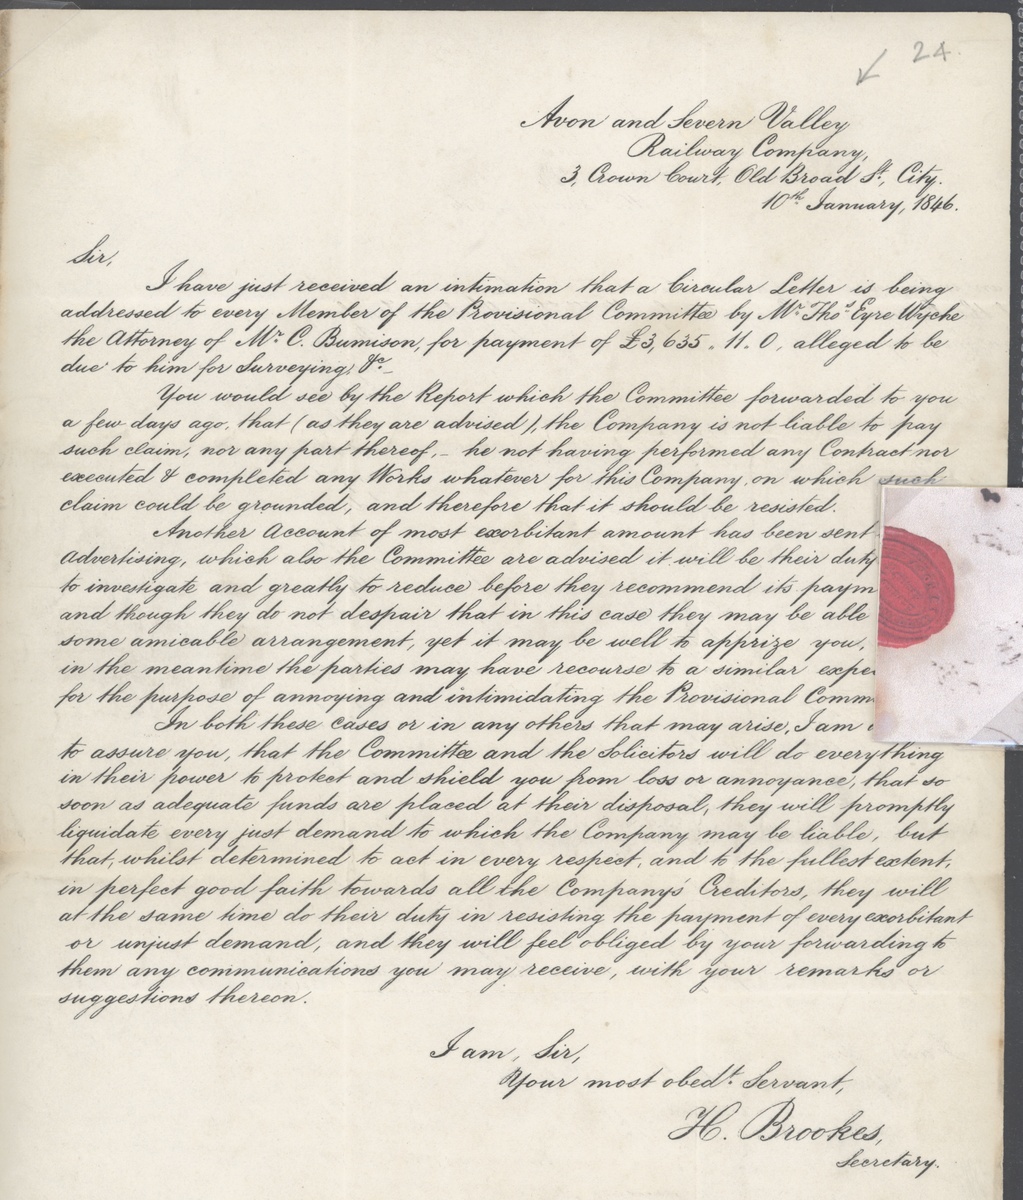 24.
Avon and Severn Valley
Railway Company,
3, Crown Court, Old Broad St, City.
10th January, 1846.
Sir,
I have just received an intimation that a Circular Letter is being
addressed to every Member of the Provisional Committee by Mr Thos Eyre Wyche
the Attorney of Mr C. Bumison, for payment of £3,635.11.0, alleged to be
due to him for Surveying, &c_
You would see by the Report which the Committee forwarded to you
a few days ago, that (as they are advised), the Company is not liable to pay
such claim, nor any part thereof,_ he not having performed any Contract nor
executed & completed any Works whatever for this Company, on which such
claim could be grounded, and therefore that it should be resisted.
Another Account of most exorbitant amount has been sent
Advertising, which also the Committee are advised it will be their duty
to investigate and greatly to reduce before they recommend its paym
and though they do not despair that in this case they may be able
some amicable arrangement, yet it may be well to apprize you,
in the meantime the parties may have recourse to a similar expe
for the purpose of annoying and intimidating the Provisional Comm
In both these cases or in any others that may arise, I am
to assure you, that the Committee and the Solicitors will do everything
in their power to protect and shield you from loss or annoyance, that so
soon as adequate funds are placed at their disposal, they will promptly
liquidate every just demand to which the Company may be liable, but
that, whilst determined to act in every respect, and to the fullest extent,
in perfect good faith towards all the Company's Creditors, they will
at the same time do their duty in resisting the payment of every exorbitant
or unjust demand, and they will feel obliged by your forwarding to
them any communications you may receive, with your remarks or
suggestions thereon.
I am, Sir,
Your most obedt. Servant,
H. Brookes,
Secretary.